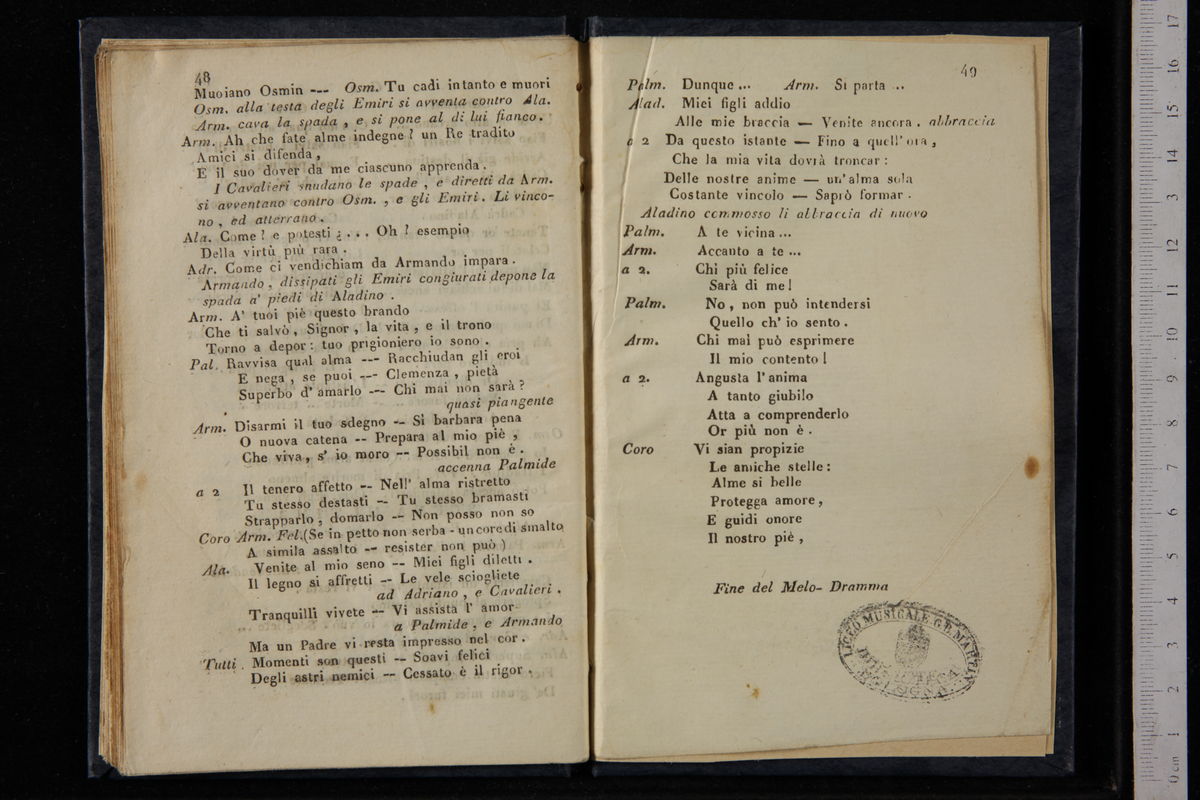 48
Muoiano Osmin --- Osm. Tu cadi intanto e muori
Osm. alla testa degli Emiri si avventa contro Ala.
Arm. cava la spada , e si pone al di lui fianco.
Arm. Ah che fate alme indegne ? un Re tradito
Amici si difenda ,
E il suo dover da me ciascuno apprenda.
I Cavalieri snudano le spade , e diretti da Arm.
si avventano contro Osm. , e gli Emiri. Li vinco-
no , ed atterrano.
Ala. Come ? e potesti ¿ . . . Oh ? esempio
Della virtù più rara .
Adr. Come ci vendichiam da Armando impara.
Armando , dissipati gli Emiri congiurati depone la
spada a' piedi di Aladino .
Arm. A' tuoi piè questo brando
Che ti salvò, Signor , la vita , e il trono
Torno a depor : tuo prigioniero io sono .
Pal. Ravvisa qual alma --- Racchiudan gli eroi
E nega , se puoi --- Clemenza , pietà
Superbo d' amarlo --- Chi mai non sarà ?
quasi piangente
Arm. Disarmi il tuo sdegno -- Sì barbara pena
O nuova catena -- Prepara al mio piè ,
Che viva , s' io moro -- Possibil non è .
accenna Palmide
a 2 Il tenero affetto -- Nell' alma ristretto
Tu stesso destasti -- Tu stesso bramasti
Strapparlo , domarlo -- Non posso non so
Coro Arm. Fel.(Se in petto non serba - un core di smalto
A simila assalto -- resister non può )
Ala. Venite al mio seno -- Miei figli diletti .
Il legno si affretti -- Le vele sciogliete
ad Adriano , e Cavalieri .
Tranquilli vivete -- Vi assista l' amor
a Palmide , e Armando
Ma un Padre vi resta impresso nel cor .
Tutti . Momenti son questi -- Soavi felici
Degli astri nemici -- Cessato è il rigor .
49
Palm. Dunque ... Arm. Si parta ...
Alad. Miei figli addio
Alle mie braccia — Venite ancora . abbraccia
a 2 Da questo istante — Fino a quell' ora ,
Che la mia vita dovrà troncar :
Delle nostre anime — un' alma sola
Costante vincolo — Saprò formar .
Aladino commosso li abbraccia di nuovo
Palm. A te vicina ...
Arm. Accanto a te ...
a 2. Chi più felice
Sarà di me !
Palm. No , non può intendersi
Quello ch' io sento .
Arm. Chi mai può esprimere
Il mio contento !
a 2. Angusta l' anima
A tanto giubilo
Atta a comprenderlo
Or più non è .
Coro Vi sian propizie
Le amiche stelle :
Alme si belle
Protegga amore ,
E guidi onore
Il nostro piè ,
Fine del Melo- Dramma
LICEO MUSICALE G.B. MARTINI
BIBLIOTECA
BOLOGNA
0 cm 1 2 3 4 5 6 7 8 9 10 11 12 13 14 15 16 17